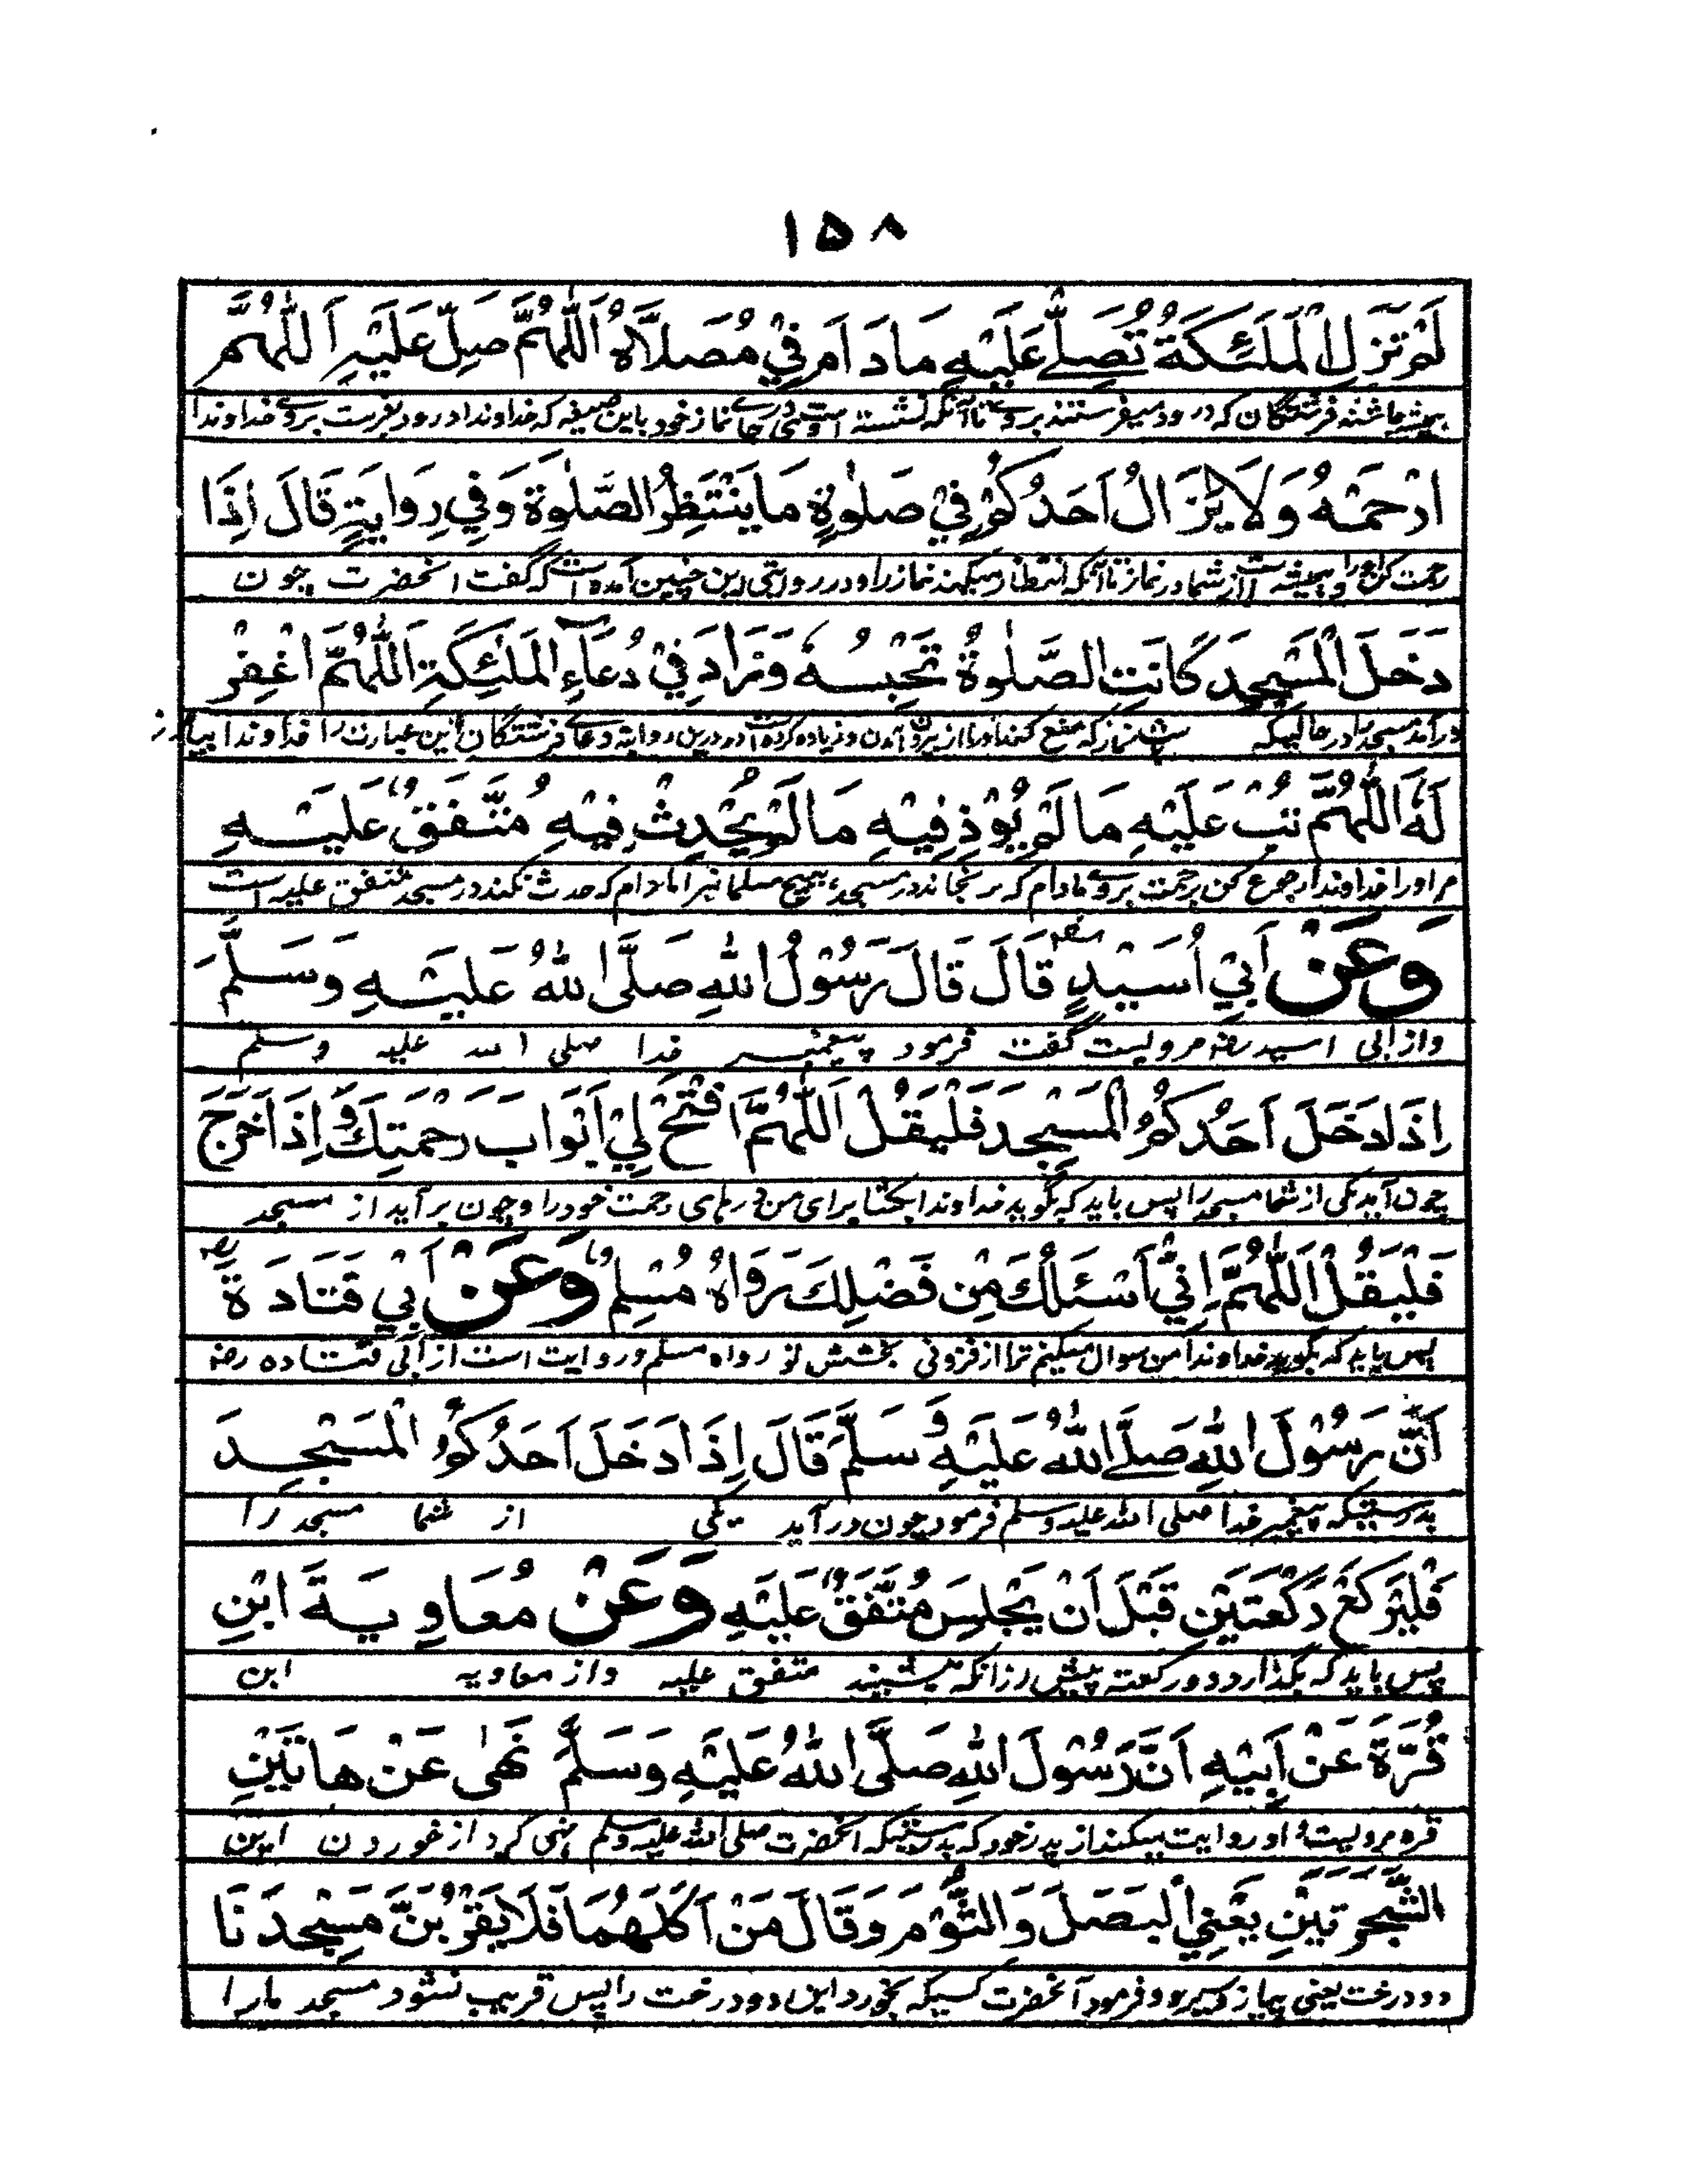 ۱۵۸
لَمْ تَزَلِ الْمَلٰئِكَةُ تُصَلِّے عَلَيْهِ مَادَامَ فِيْ مُصَلَّاهُ اَللّٰهُمَّ صَلِّ عَلَيْهِ اَللّٰهُمَّ
همیشه باشند فرشتگان که درود میفرستند بروے تا آنکه نشسته است در جاے نماز خود باین صیغه که خداوندا درود بفرست بروے خداوندا
ارْحَمْهُ وَلَا يَزَالُ اَحَدُكُمْ فِيْ صَلٰوةٍ مَا يَنْتَظِرُ الصَّلٰوةَ وَفِيْ رِوَايَةٍ قَالَ اِذَا
رحمت کن اورا و همیشه است از شما در نماز تا آنکه انتظار میکند نماز را و در روایتی این چنین آمده است که گفت آنحضرت چون
دَخَلَ الْمَسْجِدَ كَانَتِ الصَّلٰوةُ تَحْبِسُهٗ وَزَادَ فِيْ دُعَآءِ الْمَلٰئِكَةِ اللّٰهُمَّ اغْفِرْ
درآمد مسجد را در حالیکه نماز که منع کند اورا از بیرون آمدن و زیاده کرده است در درین روایت دعاے فرشتگان این عبارت را خداوندا بیامرز
لَهٗ اَللّٰهُمَّ تُبْ عَلَيْهِ مَا لَمْ يُوْذِ فِيْهِ مَا لَمْ يُحْدِثْ فِيْهِ مُتَّفَقٌ عَلَيْهِ
مر اورا خداوندا رجوع کن برحمت بروے مادام که نرنجاند در مسجد هیچ مسلمانیرا مادام که حدث نکند در مسجد متفق علیه است
وَعَنْ اَبِيْ اُسَيْدٍ رضه قَالَ قَالَ رَسُوْلُ اللّٰهِ صَلَّى اللّٰهُ عَلَيْهِ وَسَلَّمَ
و از ابی اسید رضه مرویست گفت فرمود پیغمبر خدا صلی الله علیه وسلم
اِذَا دَخَلَ اَحَدُكُمُ الْمَسْجِدَ فَلْيَقُلْ اَللّٰهُمَّ افْتَحْ لِيْ اَبْوَابَ رَحْمَتِكَ وَاِذَا خَرَجَ
چون آید یکی از شما مسجد را پس باید که بگوید خداوندا بکشا برای من درهای رحمت خود را و چون برآید از مسجد
فَلْيَقُلْ اَللّٰهُمَّ اِنِّيْ اَسْئَلُكَ مِنْ فَضْلِكَ رَوَاهُ مُسْلِمٌ وَعَنْ اَبِيْ قَتَادَةَ رضه
پس باید که بگوید خداوندا من سوال میکنم ترا از فزونی بخشش تو رواه مسلم و روایت است از ابی قتاده رضه
اَنَّ رَسُوْلَ اللّٰهِ صَلَّے اللّٰهُ عَلَيْهِ وَسَلَّمَ قَالَ اِذَا دَخَلَ اَحَدُكُمُ الْمَسْجِدَ
بدرستیکه پیغمبر خدا صلی الله علیه وسلم فرمود چون درآید یکی از شما مسجد را
فَلْيَرْكَعْ رَكْعَتَيْنِ قَبْلَ اَنْ يَجْلِسَ مُتَّفَقٌ عَلَيْهِ وَعَنْ مُعَاوِيَةَ ابْنِ
پس باید که بگذارد دو رکعته پیش ازانکه بنشیند متفق علیه و از معاویه ابن
قُرَّةَ عَنْ اَبِيْهِ اَنَّ رَسُوْلَ اللّٰهِ صَلَّى اللّٰهُ عَلَيْهِ وَسَلَّمَ نَهٰى عَنْ هَاتَيْنِ
قره مرویست او روایت میکند از پدر خود که بدرستیکه آنحضرت صلی الله علیه وسلم نهی کرد از خوردن این
الشَّجَرَتَيْنِ يَعْنِي الْبَصَلَ وَالثُّوْمَ وَقَالَ مَنْ اَكَلَهُمَا فَلَا يَقْرُبَنَّ مَسْجِدَنَا
دو درخت یعنی پیاز و سیر و فرمود آنحضرت کسیکه بخورد این دو درخت را پس قریب نشود مسجد مارا